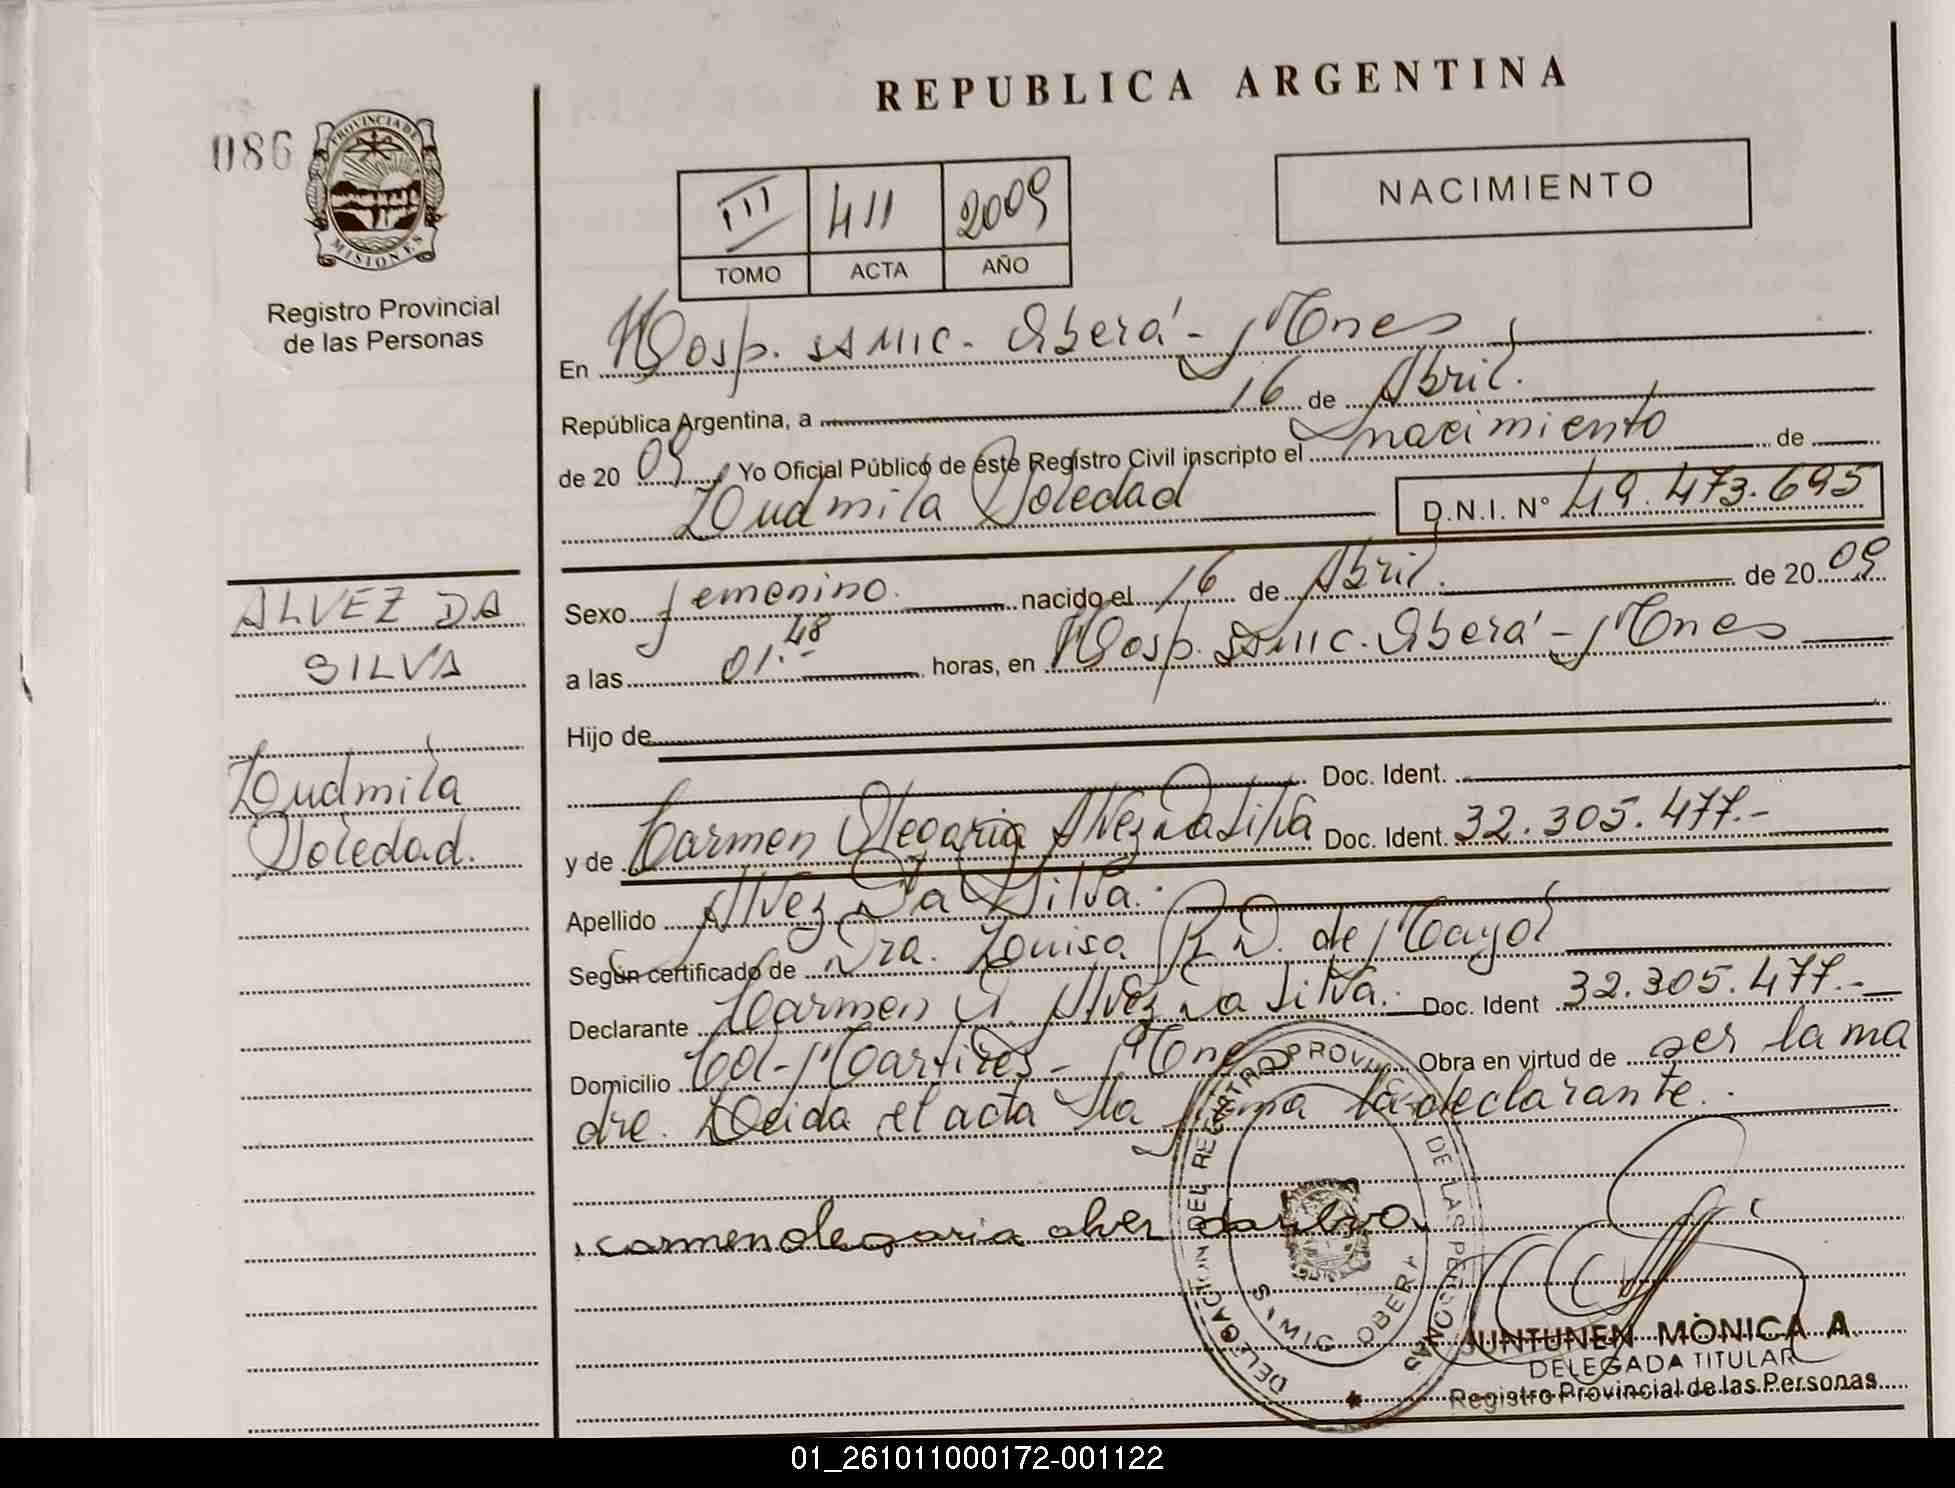 REPUBLICA ARGENTINA
086
PROVINCIA DE
MISIONES
Registro Provincial
de las Personas
III 411 2009
TOMO ACTA AÑO
NACIMIENTO
En Hosp. SAMIC - Oberá - Mnes
República Argentina, a 16 de Abril.
de 20 09 Yo Oficial Público de éste Registro Civil inscripto el nacimiento de
Ludmila Soledad D.N.I. Nº 49.473.695
ALVEZ DA
SILVA
Ludmila
Soledad.
Sexo femenino. nacido el 16 de Abril. de 20 09
a las 01.48 horas, en Hosp. SAMIC. Oberá - Mnes
Hijo de
Doc. Ident.
y de Carmen Olegaria Alvez Da Silva Doc. Ident. 32.305.477.-
Apellido Alvez Da Silva.
Según certificado de Dra. Louisa R. D. de Mayol
Declarante Carmen O. Alvez Da Silva. Doc. Ident 32.305.477.-
Domicilio Col - Martires - Mnes Obra en virtud de ser la ma
dre. Leida el acta la firma la declarante.
carmen olegaria alvez da silva
DELEGACION DEL REGISTRO PROVINCIAL DE LAS PERSONAS
SAMIC OBERA
JUNTUNEN MÒNICA A
DELEGADA TITULAR
Registro Provincial de las Personas
01_261011000172-001122